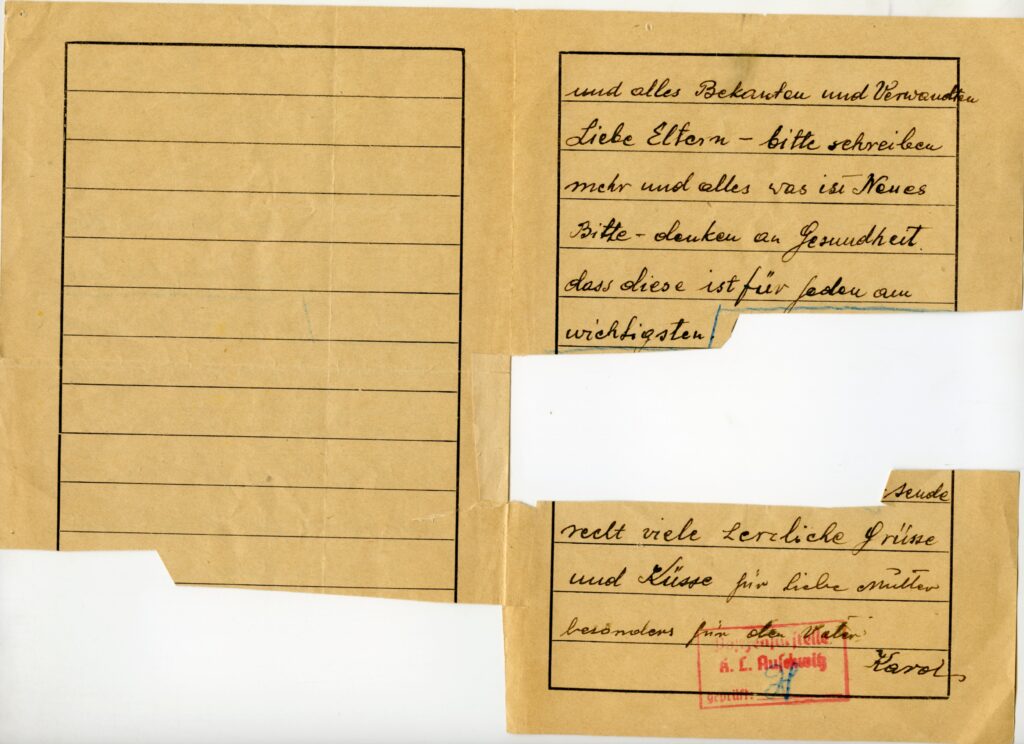 und alles Bekanten und Verwandten
Liebe Eltern – bitte schreiben
mehr und alles was ist Neues
Bitte – denken an Gesundheit.
dass diese ist für jeden am
wichtigsten
sende
recht viele herzliche Grüsse
und Küsse für liebe Mutter
besonders für den Vater
Karol
Postzensurstelle
K. L. Auschwitz
geprüft: